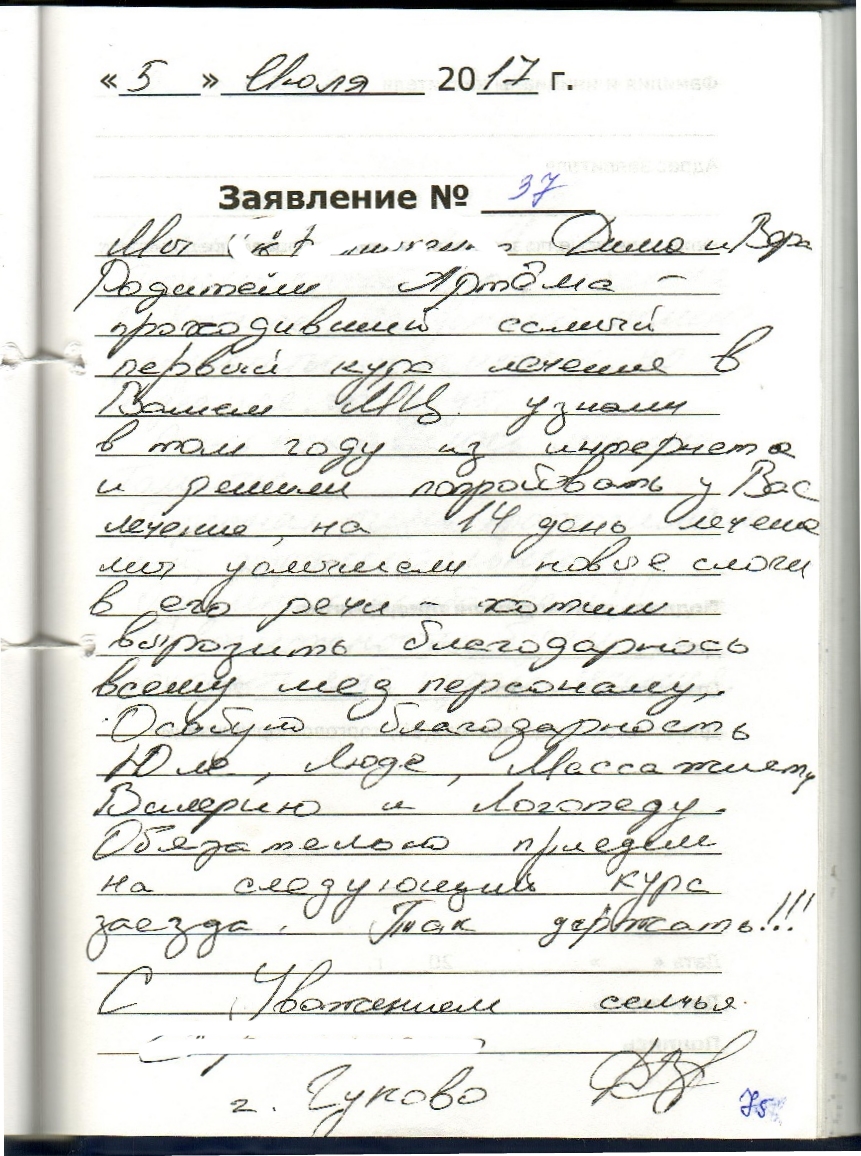 « 5 » Июля 2017 г.
Заявление № 37
Мы Дима и Вера
Родители Артёма –
проходивший самый
первый курс лечение в
Вашем МЦ узнали
в том году из интернета
и решили попробовать у Вас
лечение, на 14 день лечена
мы услышали новые слоги
в его речи – хотим
выразить благодарнось
всему мед персоналу,
Особую благодарность
Юле, Люде, Массажисту
Валерию и Логопеду.
Обязательно приедем
на следующий курс
заезда. Так держать!!!
С Уважением семья
г. Гуково
75